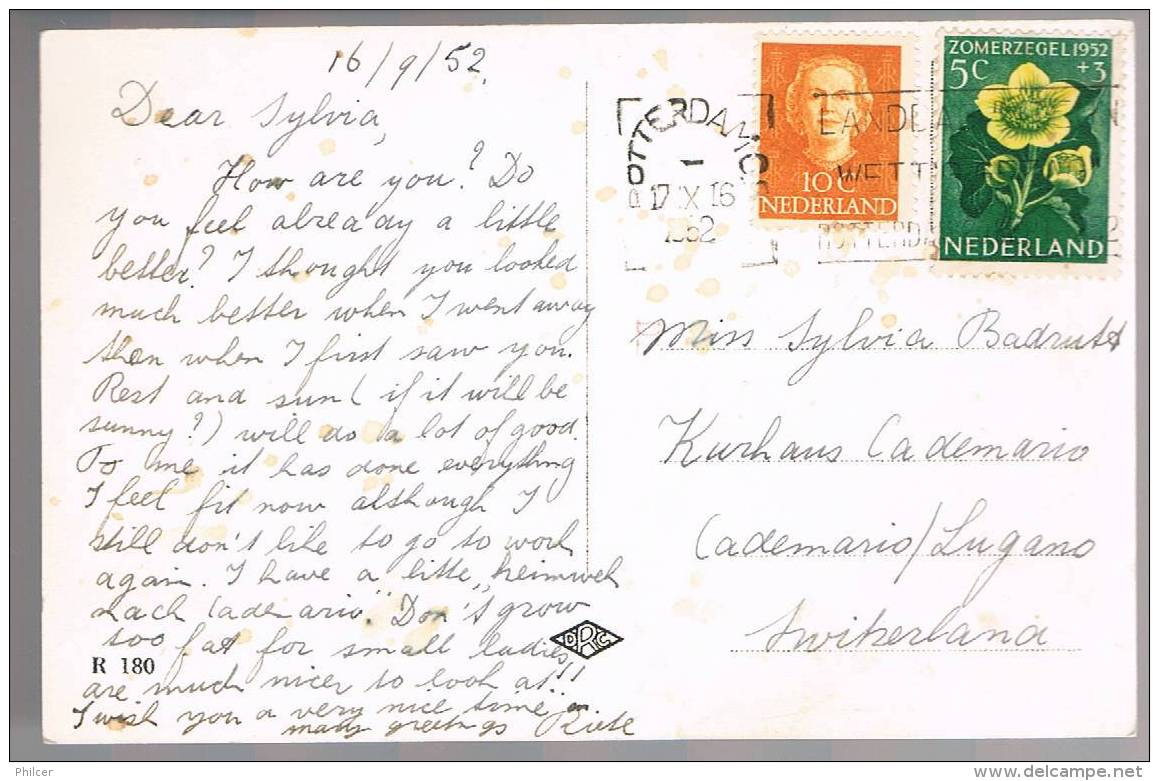 16/9/52.
Dear Sylvia,
How are you? Do
you feel already a little
better? I thought you looked
much better when I went away
then when I first saw you.
Rest and sun (if it will be
sunny?) will do a lot of good.
To me it has done everything
I feel fit now although I
still don't like to go to work
again. I have a litte „heimweh
nach Cademario". Don't grow
too fat for small ladies
are much nicer to look at!!
I wish you a very nice time
many greetings
R 180
DRG
ROTTERDAM
1
17 IX 16
1952
ROTTERDA
10 C
NEDERLAND
ZOMERZEGEL 1952
5 C +3
NEDERLAND
Miss Sylvia Badrutt
Kurhaus Cademario
Cademario/Lugano
Switzerland
Philcer
www.delcampe.net